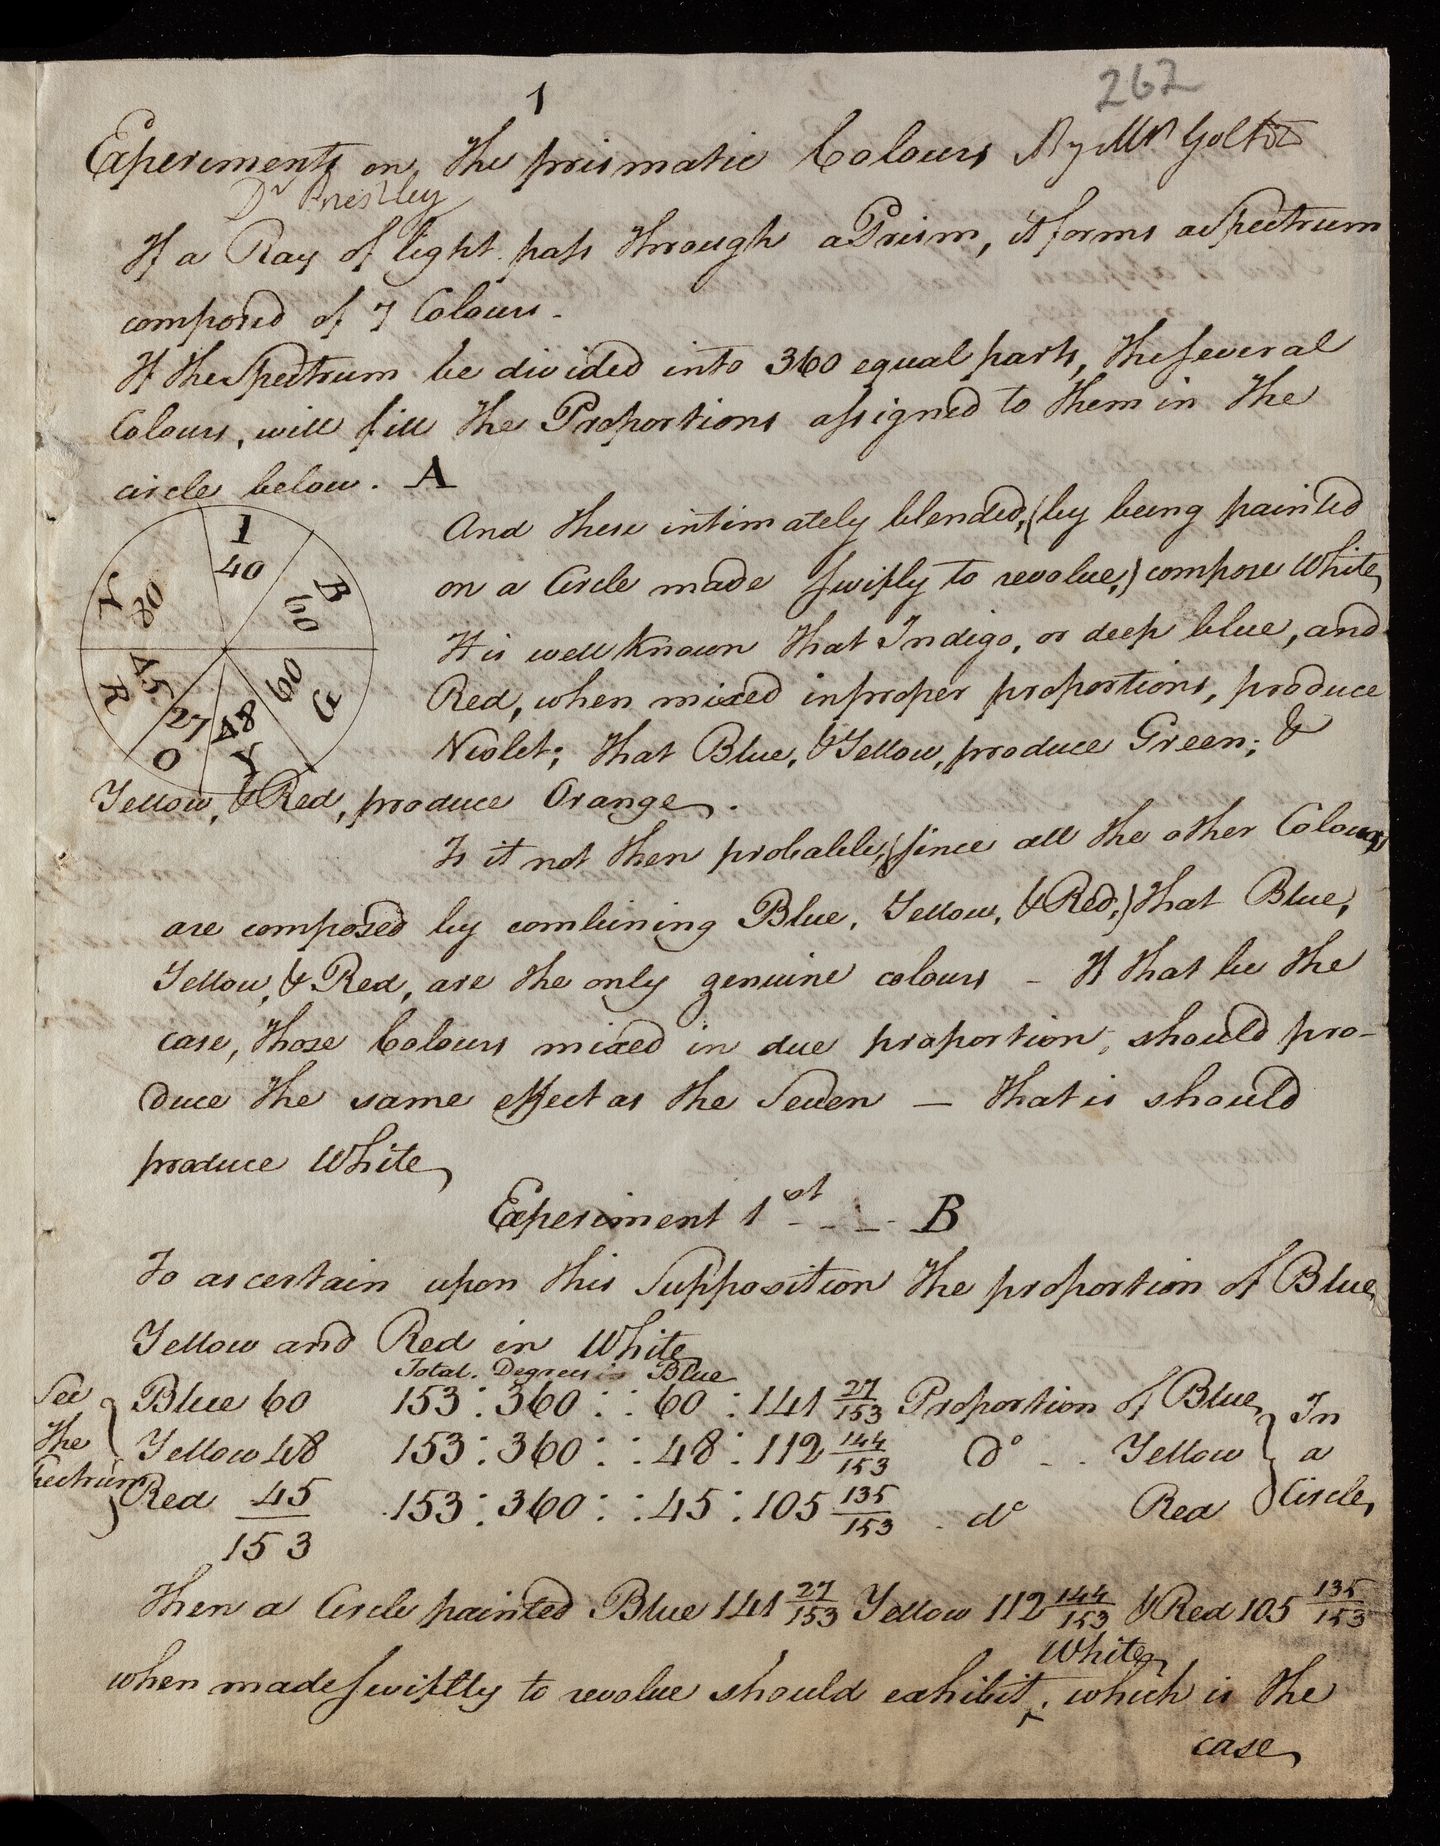 1
262
Experiments on the prismatic Colours By Mr Golton
Dr Priestley
If a Ray of light pass through a Prism, it forms a Spectrum
composed of 7 Colours.
If the Spectrum be divided into 360 equal parts, the several
Colours, will fill the Proportions assigned to them in the
circle below. A
And these intimately blended, (by being painted
on a Circle made swiftly to revolve,) compose White
It is well known that Indigo, or deep blue, and
Red, when mixed in proper proportions, produce
Violet; that Blue, & Yellow, produce Green; &
Yellow, & Red, produce Orange.
I
40
B
60
G
60
Y
48
O
27
R
45
V
80
Is it not then probable, (since all the other Colours
are composed by combining Blue, Yellow, & Red,) that Blue,
Yellow, & Red, are the only genuine colours - If that be the
case, those Colours mixed in due proportion, should pro-
duce the same effect as the Seven — that is should
produce White
Experiment 1st - - - - B
To ascertain upon this Supposition the proportion of Blue
Yellow and Red in White
Total. Degrees in Blue
See the Spectrum } Blue 60 153 : 360 : : 60 : 141 27/153 Proportion of Blue } In a Circle
Yellow 48 153 : 360 : : 48 : 112 144/153 do - . Yellow
Red 45 153 : 360 : : 45 : 105 135/153 . do Red
153
Then a Circle painted Blue 141 27/153 Yellow 112 144/153 & Red 105 135/153
White
when made swiftly to revolve should exhibit ^. which is the
case